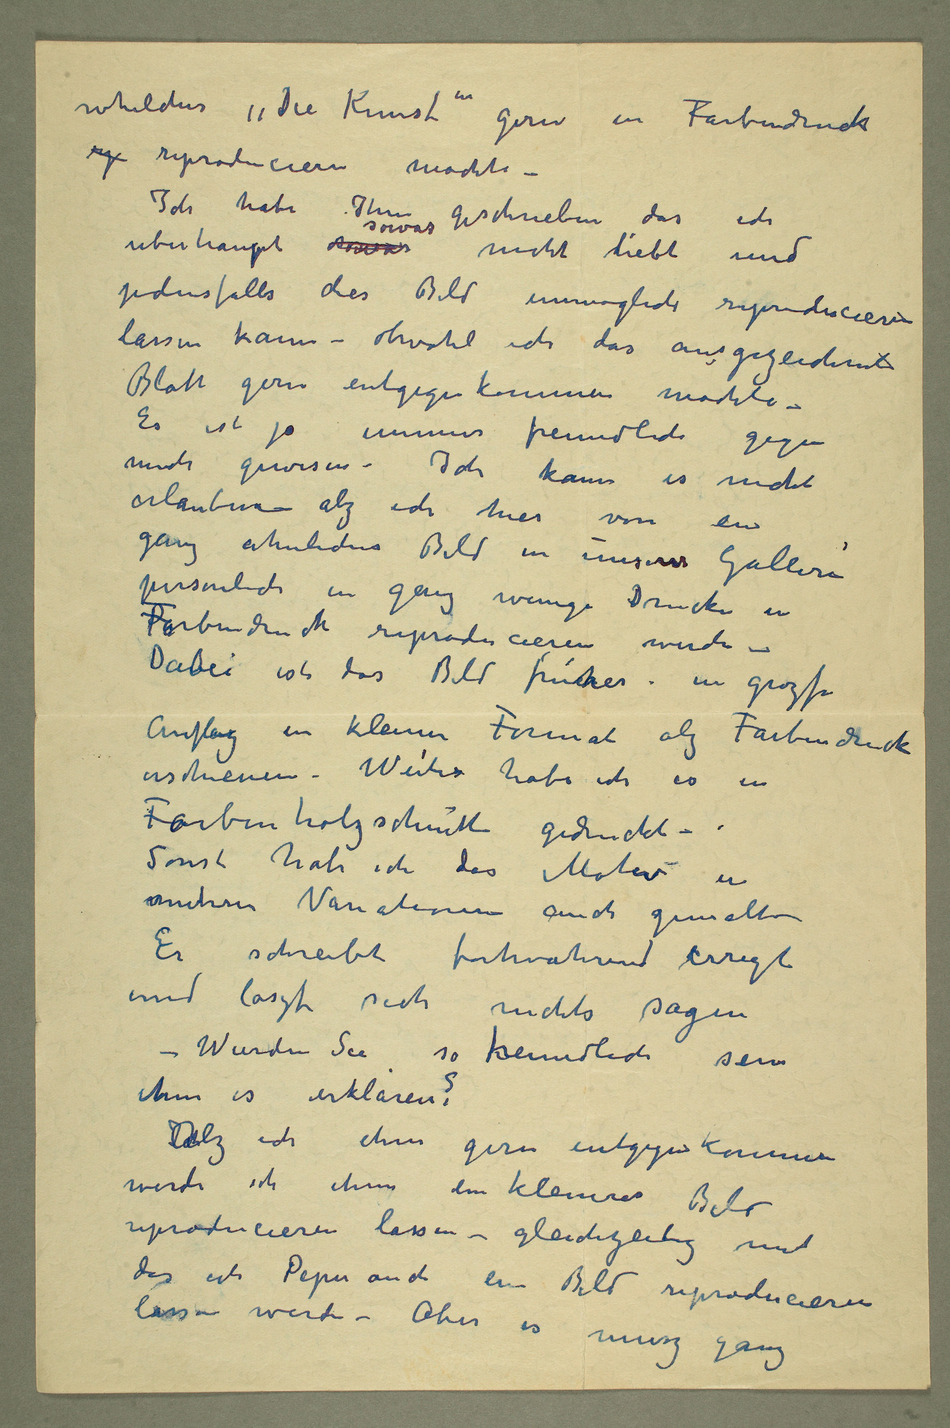 welches „Die Kunst“ gern in Farbendruck
reproducieren möchte –
Ich habe Ihm geschrieben das ich
überhaupt sowas nicht liebt und
jedensfalls dies Bild unmöglich reproducieren
lassen kann – obwohl ich das ausgezeichnete
Blatt gern entgegenkommen möchte –
Es ist ja immer freundlich gegen
mich gewesen – Ich kann es nicht
erlauben – alz ich hier von ein
ganz ähnliches Bild in unserer Galleri
personlich in ganz wenige Drucke in
Farbendruck reproducieren werde –
Dabei ist das Bild früher in grozse
Auflag in kleiner Format alz Farbendruck
erschienen – Weiter habe ich es in
Farbenholzschnitt gedruckt –
Sonst habe ich das Motiv in
mehrere Variationen auch gemalt –
Er schreibt fortwährend erregt
und laszt sich nichts sagen
– Würden Sie so freundlich sein
ihm es erklären?
Alz ich ihm gern entgegenkommen
werde ich ihm ein kleineres Bild
reproducieren lassen – gleichzeitig mit
das ich Piper auch ein Bild reproducieren
lassen werde – Aber es musz ganz